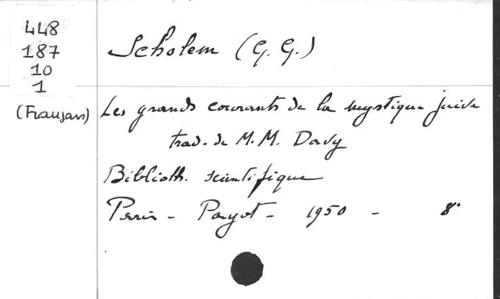 448
187
10
1
(Français)
Scholem (G. G.)
Les grands courants de la mystique juive
trad. de M. M. Davy
Biblioth. scientifique
Paris - Payot - 1950 - 8°